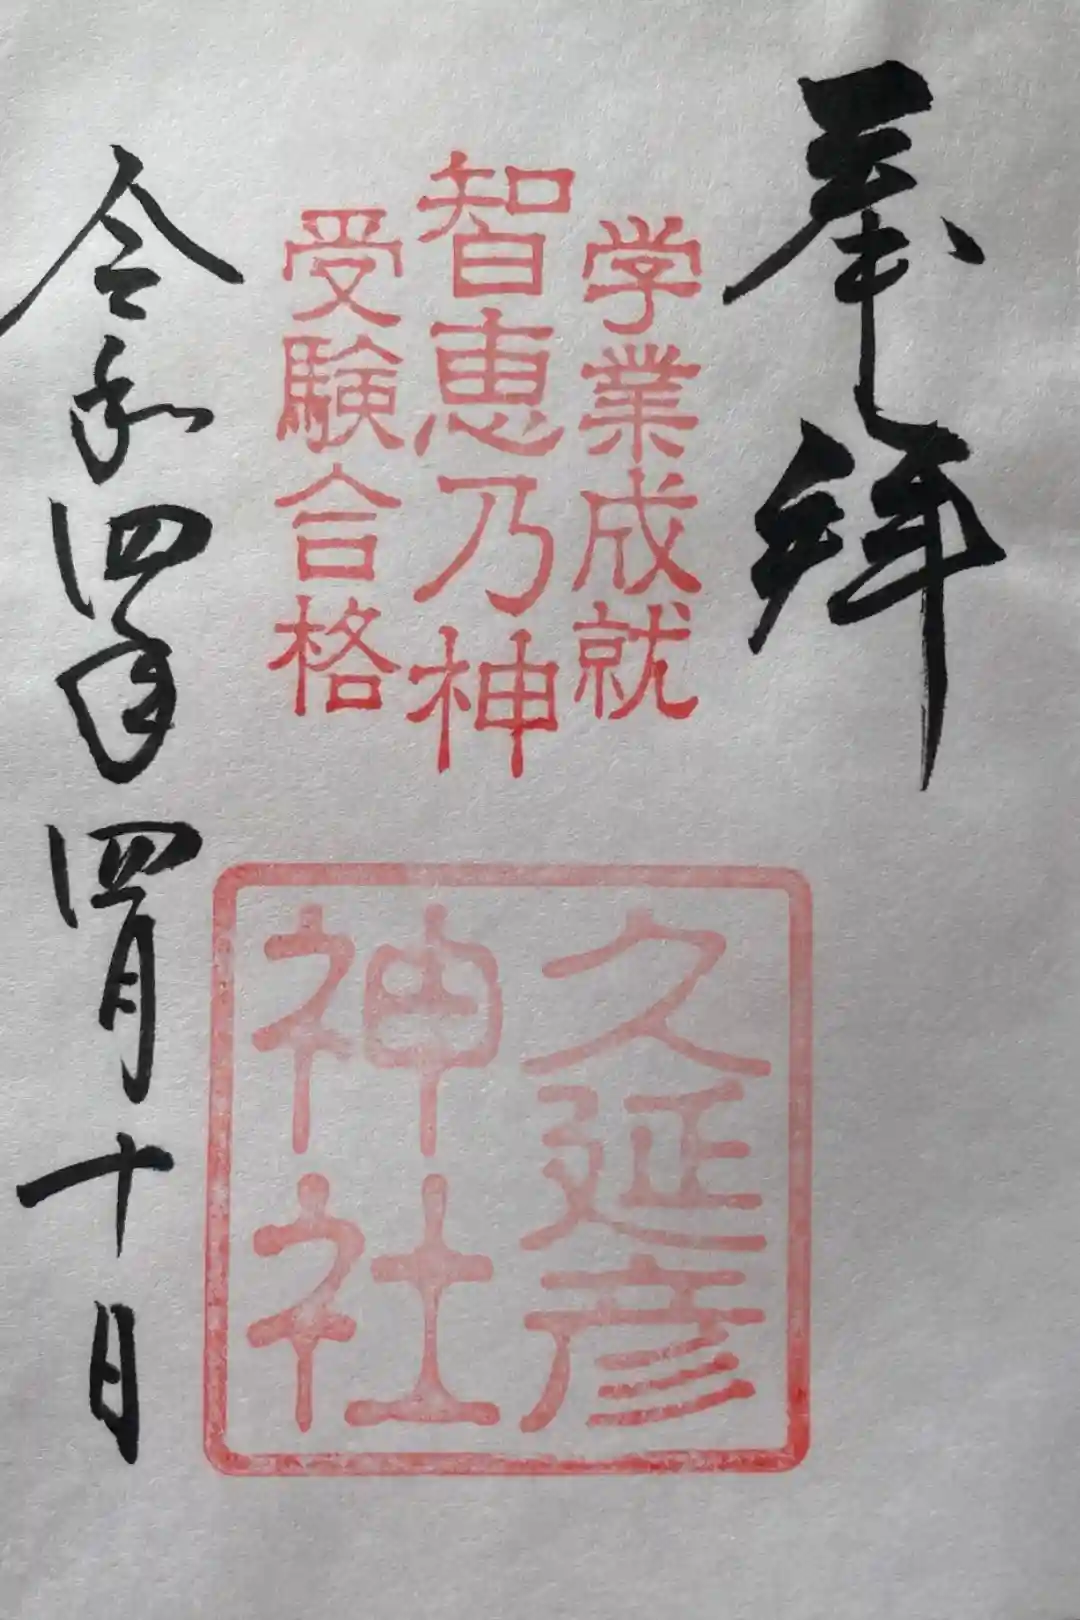 奉拜
学業成就
智恵乃神
受験合格
久延彦
神社
令和四年四月十日